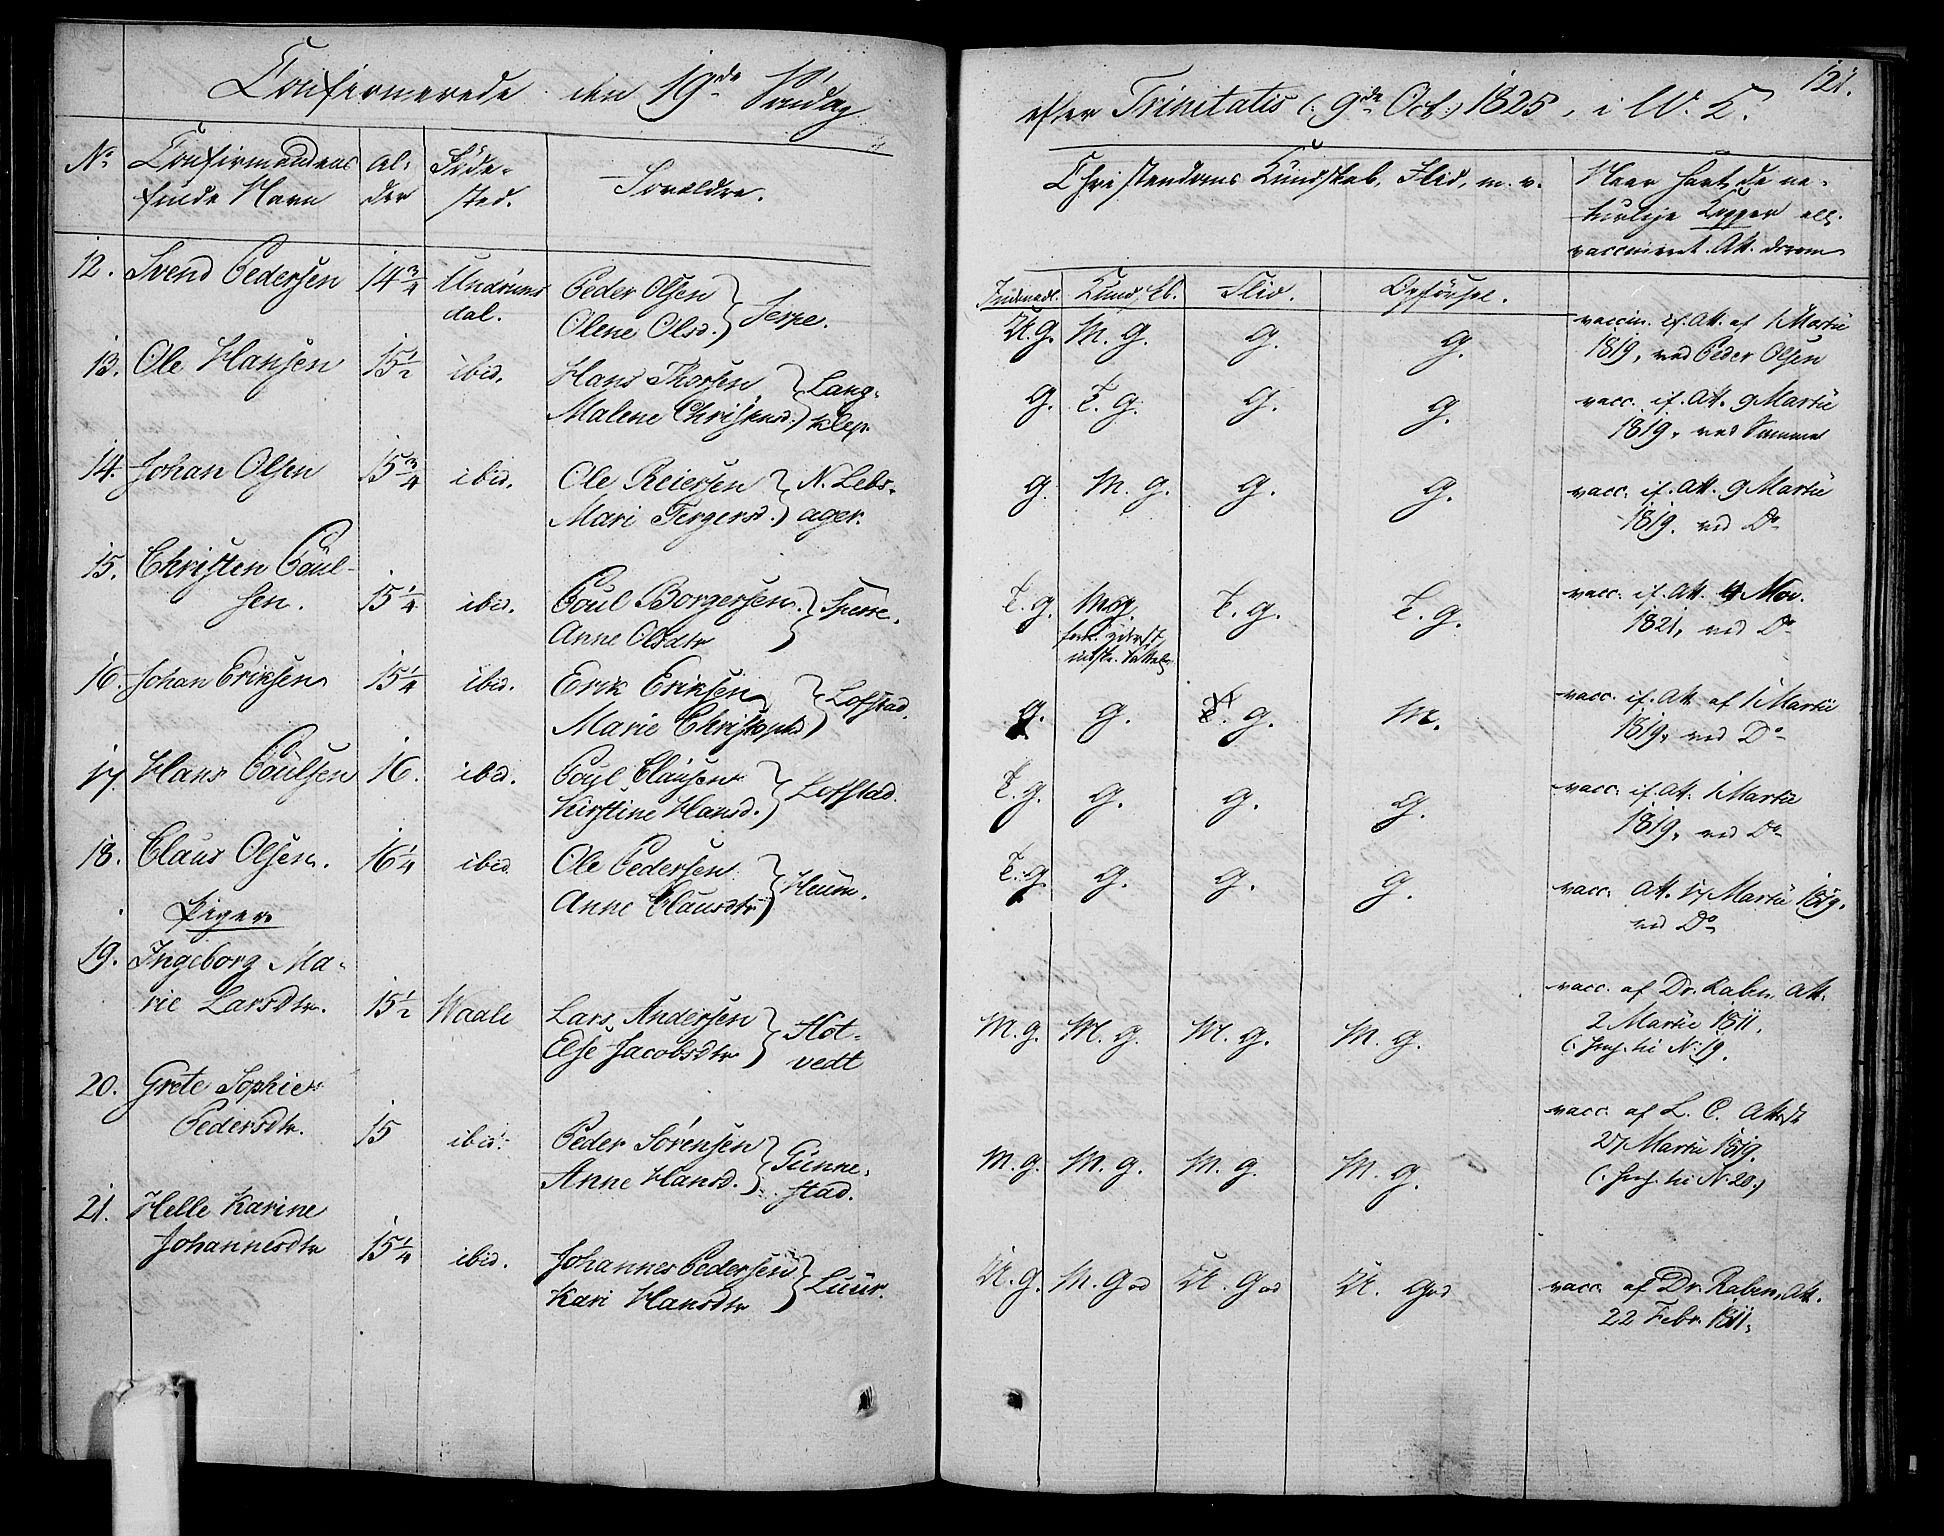 Confirmerede den 19de Søndag
No Confirmandens fulde Navn
Al-der
Føde-sted.
Forældre.
12. Svend Pedersen 14 3/4 Undrums dal. Peder Olsen
Olene Olsd. } Serpe.
13. Ole Hansen 15 1/2 ibid. Hans Thorsen
Malene Christensd. } Lang-klep
14. Johan Olsen 15 3/4 ibid. Ole Reiersen
Mari Tergersd. } N. Lebs-ager.
15. Christen Poul-
sen. 15 1/4 ibid. Poul Borgersen
Anne Olsdtr } Sverre.
16. Johan Eriksen 15 1/4 ibid. Erik Eriksen
Marie Christophd } Lofstad.
17. Hans Poulsen 16. ibid. Poul Clausen
Kirstine Hansd. } Lofstad.
18. Claus Olsen. 16 1/4 ibid. Ole Pedersen
Anne Clausdtr } Heum.
Piger
19. Ingeborg Ma-
rie Larsdtr. 15 1/2 Waale Lars Andersen
Else Jacobsdtr } Hot-vedt
20. Grete Sophie
Pedersdtr. 15 ibid. Peder Sørensen
Anne Hansd. } Gunne-stad.
21. Helle Karine
Johannesdtr 15 1/4 ibid. Johannes Pedersen
Kari Hansdtr } Luur.
121.
efter Trinitatis (: 9de Oct:) 1825, i W. K.
Christendoms Kundskab, Flid, m. v.
Naar havt de na-
turlige Kopper ell.
vaccineret. Att. derom
Indenadl. Kundsk. Flid. Opførsel.
U. g. M. g. g. g. vaccin. if. Att. af 17 Martii
1819, ved Peder Olsen
g. T. g. g. g. vacc. if. Att. 9 Martii
1819, ved Samme
g. M. g. g. g. vacc. if. Att. 9 Martii
1819. ved Do
T. g. M. g. T. g. T. g. vacc. if. Att. 4 Mai.
1821, ved Do
g. g. g. M. vacc. if. Att. af 17 Martii
1819, ved Do
T. g. g. g. g. vacc. if. Att. 17 Martii
1819, ved Do
T. g. g. g. g. vacc. Att. 17 Martii 1819.
ved Do
M. g. M. g. M. g. M. g. vacc. af Dr. Raben, Att.
2 Martii 1811.
N. 19.
M. g. M. g. M. g. M. g. vacc. af L. C. Att.
27 Martii 1819.
N. 20.)
U. g. M. God U. God U. God vacc. af Dr. Raben, Att.
22 Febr. 1811.